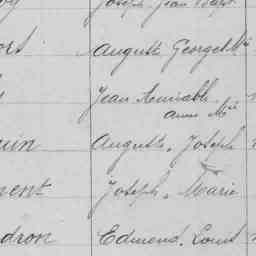 Joseph Jean Bapt
Auguste Georges Mie
Jean Aimable
anne Mie
uin Auguste, Joseph
ment Joseph, Marie
dron Edmond, Louis